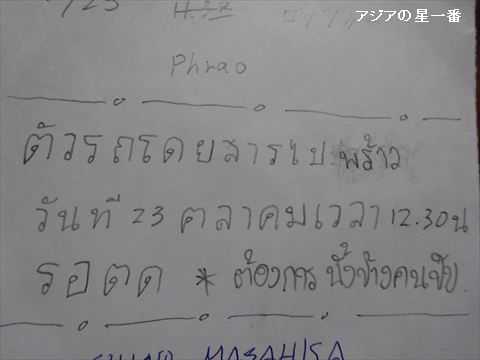 アジアの星一番
/23
Phrao
ตัวรถโดยสารไป พร้าว
วันที่ 23 ตุลาคม เวลา 12.30 น
รอตด * ต้องการ นั่งข้างคนขับ
MASAHISA